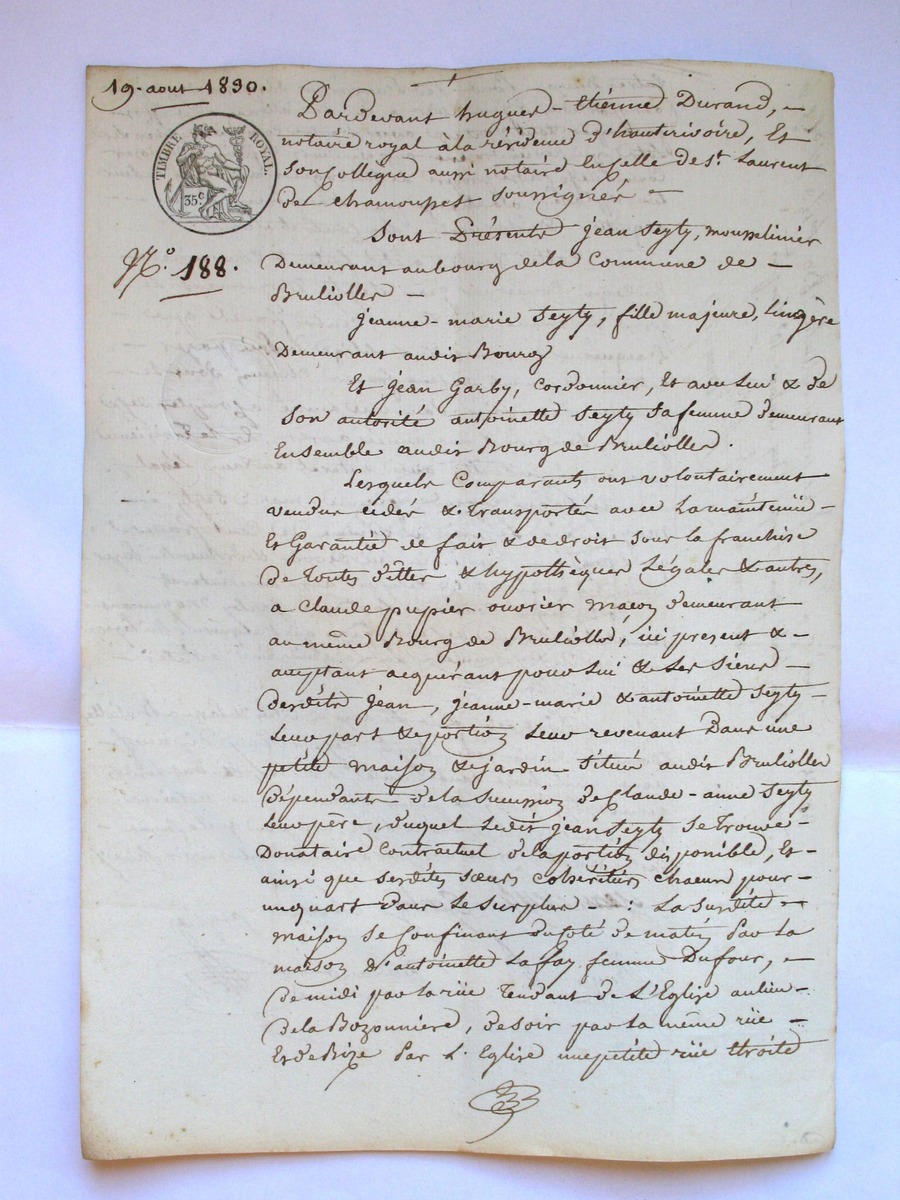 19. aout 1830.
TIMBRE ROYAL.
35c
No. 188.
Pardevant hugues - etiénne Durand, -
notaire royal à la résidence d'hauterivoire, Et
son Collegue aussi notaire En celle de st. Laurent
de Chamousset soussignés -
Sont Présents jean Seyty, mousselinier
Demeurant au bourg de la Commune de -
Brulliolles -
jeanne - marie Seyty, fille majeure, Lingère
Demeurant audit Bourg
Et jean Garby, Cordonnier, Et avec lui & de
Son autorité antoinette Seyty sa femme demeurant
Ensemble audit Bourg de Brulliolles.
Lesquels Comparants ont volontairement
vendu cédés & Transportés avec La maintenüe -
Et Garantie de fait & de droit sous la franchise
de toutes dettes & hypothèques Légales & autres,
a Claude pupier ouvrier maçon demeurant
au même Bourg de Brulliolles, ici present & -
acceptant acquérant pour lui & les siens -
desdits jean, jeanne-marie & antoinette Seyty -
Leur part & portion Leur revenant Dans une
petite maison & jardin situés audit Brulliolles
dépendants de la Succession de Claude - anne Seyty
Leur père, duquel Ledit jean Seyty se Trouve -
Donataire Contractuel de la portion disponible, Et -
ainsi que sesdites sœurs Cohéritiers chacun pour -
un quart dans Le surplus - : La susdite -
maison se Confinant du coté de matin Par La
maison d'antoinette Lafay femme Dufour, -
de midi par la rüe Tendant de L'Eglise au lieu -
de la Bozonniere, de soir par la même rüe -
Et de Bize Par L'Eglise une petite rüe etroite